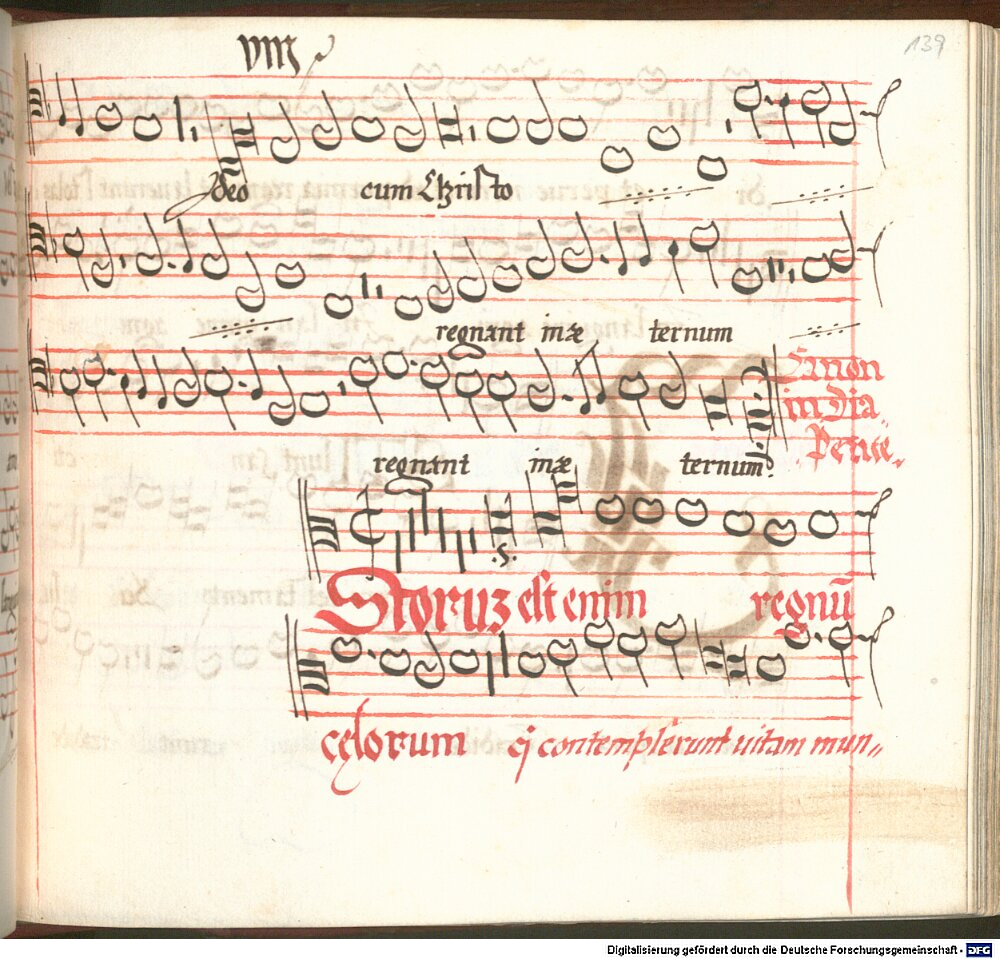 VIII
139
deo cum Christo
regnant in æ ternum
Canon
in Dia
Pente
regnant in æ ternum
.S.
Istoruz est enim regnū
celorum q̄ contempserunt uitam mun„
Digitalisierung gefördert durch die Deutsche Forschungsgemeinschaft - DFG